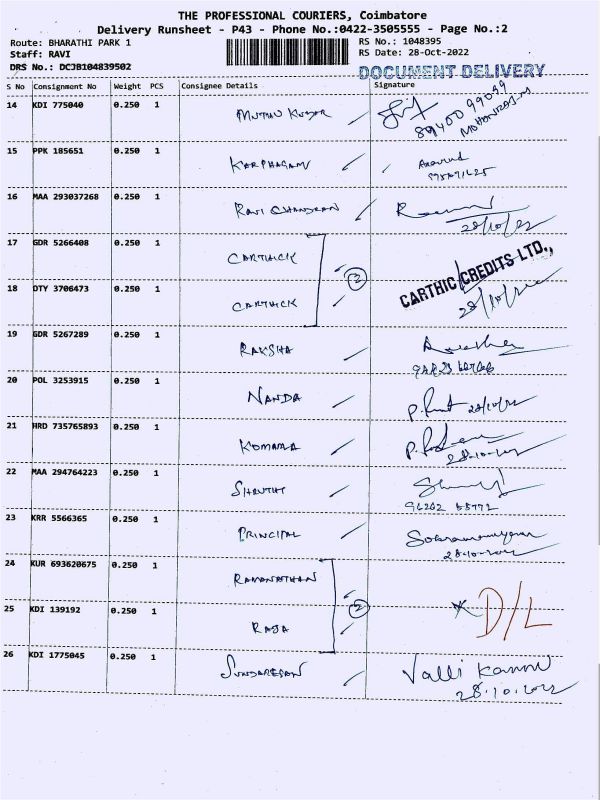 THE PROFESSIONAL COURIERS, Coimbatore
Delivery Runsheet - P43 - Phone No.:0422-3505555 - Page No.:2
Route: BHARATHI PARK 1
RS No.: 1048395
Staff: RAVI
RS Date: 28-Oct-2022
DRS No.: DCJB104839502
DOCUMENT DELIVERY
S No Consignment No Weight PCS Consignee Details Signature
14 KDI 775040 0.250 1 MUTHU KUMAR 8940099099
MOHANRAJ
15 PPK 185651 0.250 1 KARPHAGAM Aravind
16 MAA 293037268 0.250 1 RAVI CHANDRAN
28/10/22
17 GDR 5266408 0.250 1 CARTHICK
② CARTHIC CREDITS LTD.,
18 DTY 3706473 0.250 1 CARTHICK
28/10/22
19 GDR 5267289 0.250 1 RAKSHA
20 POL 3253915 0.250 1 NANDA 28/10/22
21 HRD 735765893 0.250 1 KOMALA
28-10-2022
22 MAA 294764223 0.250 1 SHRUTHI
23 KRR 5566365 0.250 1 PRINCIPAL
28-10-2022
24 KUR 693620675 0.250 1 RAMANATHAN
② D/L
25 KDI 139192 0.250 1 RAJA
26 KDI 1775045 0.250 1 SUNDARESAN Valli Kannu
28.10.2022